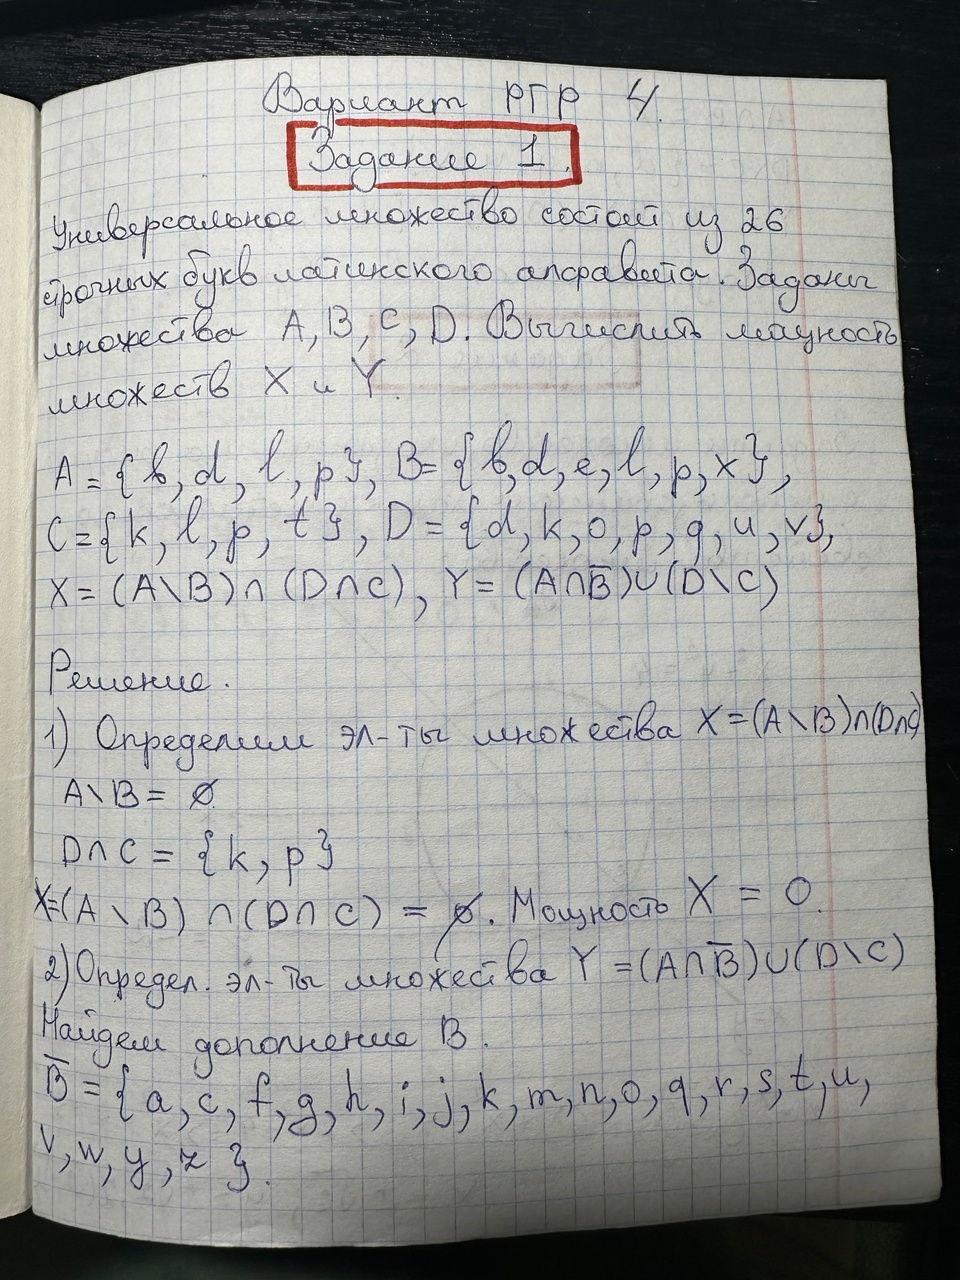 Вариант РГР 4.
Задание 1.
Универсальное множество состоит из 26
строчных букв латинского алфавита. Заданы
множества A, B, C, D. Вычислить мощность
множеств X и Y.
A = {b, d, l, p}, B = {b, d, e, l, p, x},
C = {k, l, p, t}, D = {d, k, o, p, q, u, v},
X = (A\B)∩(D∩C), Y = (A∩B̅)∪(D\C)
Решение.
1) Определим эл-ты множества X=(A\B)∩(D∩C)
A\B = ∅
D∩C = {k, p}
X=(A\B)∩(D∩C) = ∅. Мощность X = 0.
2) Определ. эл-ты множества Y =(A∩B̅)∪(D\C)
Найдем дополнение B.
B̅ = {a, c, f, g, h, i, j, k, m, n, o, q, r, s, t, u,
v, w, y, z}.